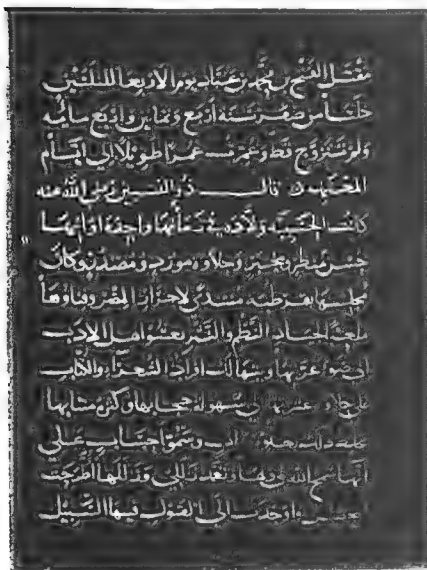 مقتل الفتح بن محمد بن عباد يوم الاربعا لليلتين
خلتا من صفر سنة أربع وثمانين وأربع مائيه
ولم تتزوج قط وعمرت عمرا طويلا إلى أيام
المعتمد قال ذو النسبين رضي الله عنه
كانت الحسيبة ولادة في زمانها واحدة أوانها
حسن منظر ومخبر وحلاوة مورد ومصدر وكان
مجلسها بقرطبة منتدى لاحرار المصر وفناؤها
ملعبا لجياد النظم والنثر يعشو اهل الادب
الى ضوء غرتها ويتهالك افراد الشعراء والكتاب
على حلاوة عشرتها الى سهولة حجابها وكثرة منتابها
تخلط ذلك الى وسمو احتساب على
انها سمح الله لها وتغمد زللها اطرحت
التحصيل واوجدت الى القول فيها السبيل